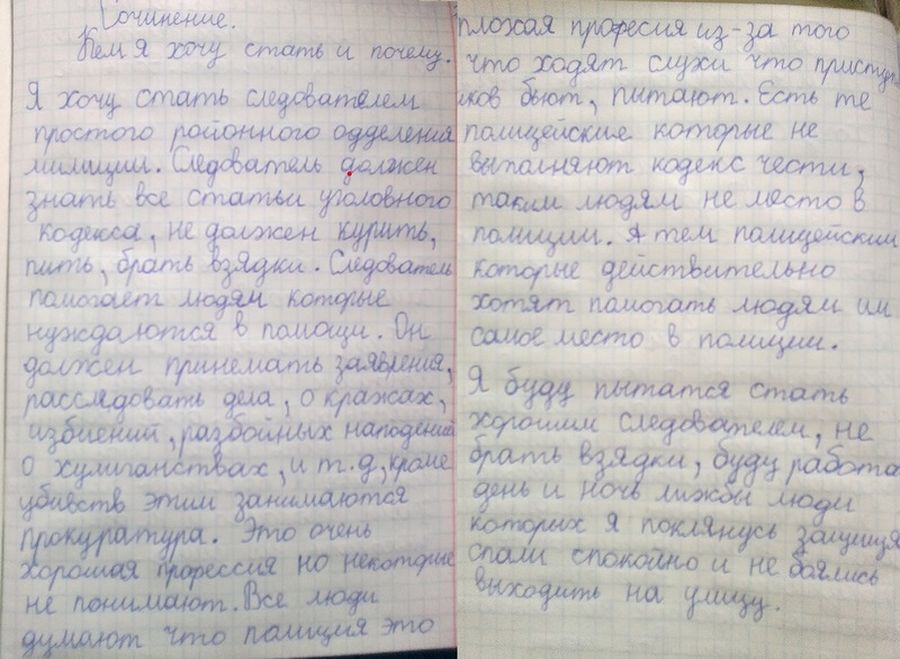 Сочинение.
Кем я хочу стать и почему.
Я хочу стать следователем
простого районного одделения
милиции. Следователь должен
знать все статьи уголовного
кодекса, не должен курить,
пить, брать взядки. Следователь
помогает людям которые
нуждаются в помощи. Он
должен принемать заявления,
расследовать дела, о кражах,
избиений, разбойных наподений
о хулиганствах, и т.д, кроме
убивств этим занимаются
прокуратура. Это очень
хорошая профессия но некоторые
не понимают. Все люди
думают что полиция это
плохая професия из-за того
что ходят слухи что приступ
иков бьют, пытают. Есть те
полицейские которые не
выполняют кодекс чести,
таким людям не место в
полиции. А тем полицейским
которые действительно
хотят помогать людям им
самое место в полиции.
Я буду пытатся стать
хорошим следователем, не
брать взядки, буду работа
день и ночь лижбы люди
которых я поклянусь защища
спали спокойно и не боялись
выходить на улицу.